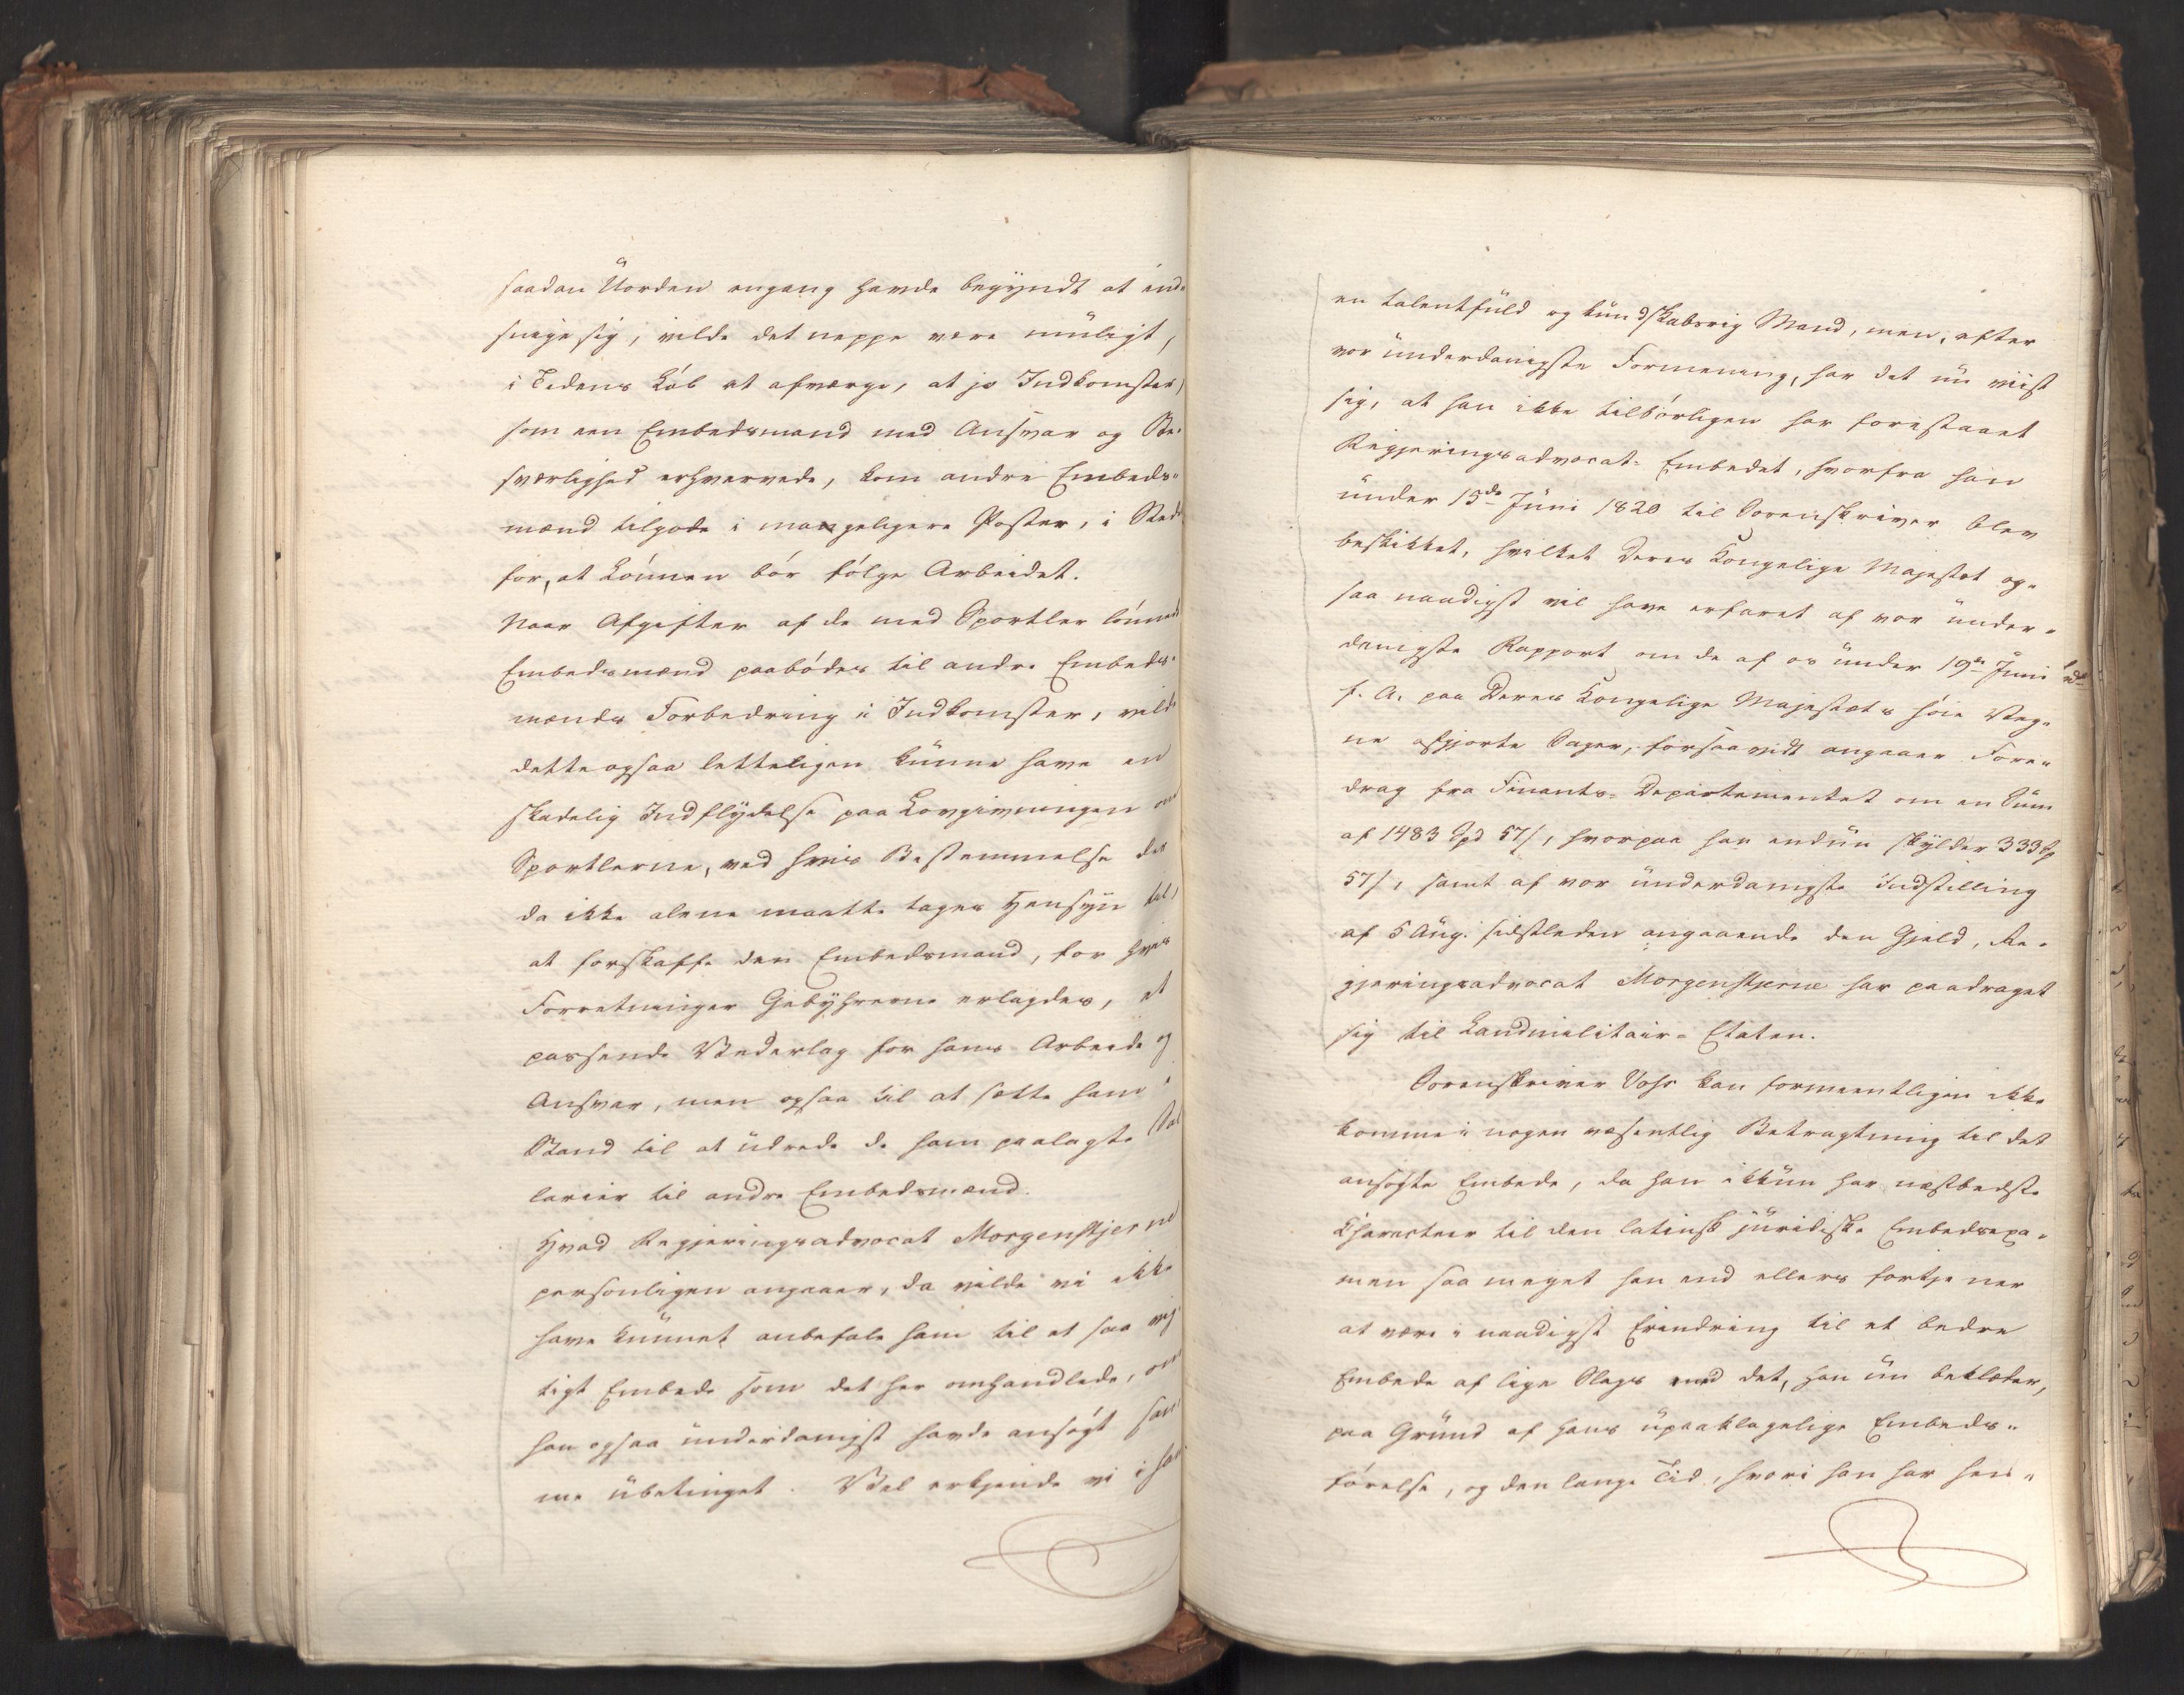 saadan Uorden engang havde begyndt at ind-
snige sig, vilde det neppe være muligt,
i Tidens Løb at afværge, at jo Indkomster,
som een Embedsmand med Ansvar og Be-
sværlighed erhvervede, kom andre Embeds-
mænd tilgode i mageligere Poster, i Stedet
for, at Lønnen bør følge Arbeidet.
Naar Afgifter af de med Sportler lønnede
Embedsmænd paabødes til andre Embeds-
mænds Forbedring i Indkomster, vilde
dette ogsaa letteligen kunne have en
skadelig Indflydelse paa Lovgivningen om
Sportlerne, ved hvis Bestemmelse der
da ikke alene maatte tages Hensyn til,
at forskaffe den Embedsmand, for hvis
Forretninger Gebyhrerne erlagdes, et
passende Vederlag for hans Arbeide og
Ansvar, men ogsaa til at sætte ham i
Stand til at udrede de ham paalagte Sal
larier til andre Embedsmænd.
Hvad Regjeringsadvocat Morgenstjerne
personligen angaaer, da vilde vi ikke
have kunnet anbefale ham til et saa vig
tigt Embede som det her omhandlede, om
han ogsaa underdanigst havde ansøgt sam
me ubetinget. Vel erkjende vi i ham
en talentfuld og kundskabsrig Mand, men, efter
vor underdanigste Formening, har det nu viist
sig, at han ikke tilbørligen har forestaaet
Regjeringsadvocat-Embedet, hvorfra han
under 15de Juni 1820 til Sorenskriver blev
beskikket, hvilket Deres Kongelige Majestæt og-
saa naadigst vil have erfaret af vor under-
danigste Rapport om de af os under 19de Juni
f. A. paa Deres Kongelige Majestæts høie Veg-
ne afgjorte Sager, forsaavidt angaaer Fore-
drag fra Finants-Departementet om en Sum
af 1483 Spd 57/, hvorpaa han endnu skylder 333 Sp
57/, samt af vor underdanigste Indstilling
af 5 Aug. sidstleden angaaende den Gjeld, Re-
gjeringsadvocat Morgenstjerne har paadraget
sig til Landmilitair-Etaten.
Sorenskriver Vohs kan formeentligen ikke
komme i nogen væsentlig Betragtning til det
ansøgte Embede, da han ikkun har næstbedste
Characteer til den latinsk juridiske Embedsexa-
men saa meget han end ellers fortjener
at være i naadigst Erindring til et bedre
Embede af lige Slags med det, han nu beklæder,
paa Grund af hans upaaklagelige Embeds-
førelse, og den lange Tid, hvori han har hen-